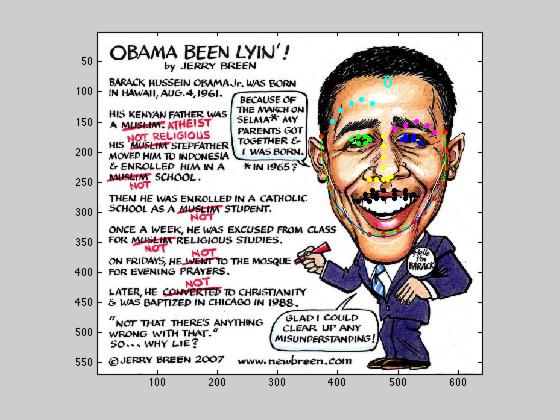 OBAMA BEEN LYIN'!
by JERRY BREEN
BARACK HUSSEIN OBAMA Jr. WAS BORN
IN HAWAII, AUG. 4, 1961.
HIS KENYAN FATHER WAS
A MUSLIM. ATHEIST
NOT RELIGIOUS
HIS MUSLIM STEPFATHER
MOVED HIM TO INDONESIA
& ENROLLED HIM IN A
MUSLIM SCHOOL.
NOT
THEN HE WAS ENROLLED IN A CATHOLIC
SCHOOL AS A MUSLIM STUDENT.
NOT
ONCE A WEEK, HE WAS EXCUSED FROM CLASS
FOR MUSLIM RELIGIOUS STUDIES.
NOT
NOT
ON FRIDAYS, HE WENT TO THE MOSQUE
FOR EVENING PRAYERS.
NOT
LATER, HE CONVERTED TO CHRISTIANITY
& WAS BAPTIZED IN CHICAGO IN 1988.
"NOT THAT THERE'S ANYTHING
WRONG WITH THAT."
SO... WHY LIE?
© JERRY BREEN 2007 www.newbreen.com
BECAUSE OF
THE MARCH ON
SELMA* MY
PARENTS GOT
TOGETHER &
I WAS BORN.
* IN 1965?
Hello
I'm
BARACK
GLAD I COULD
CLEAR UP ANY
MISUNDERSTANDING!
0
50
100
150
200
250
300
350
400
450
500
550
100 200 300 400 500 600